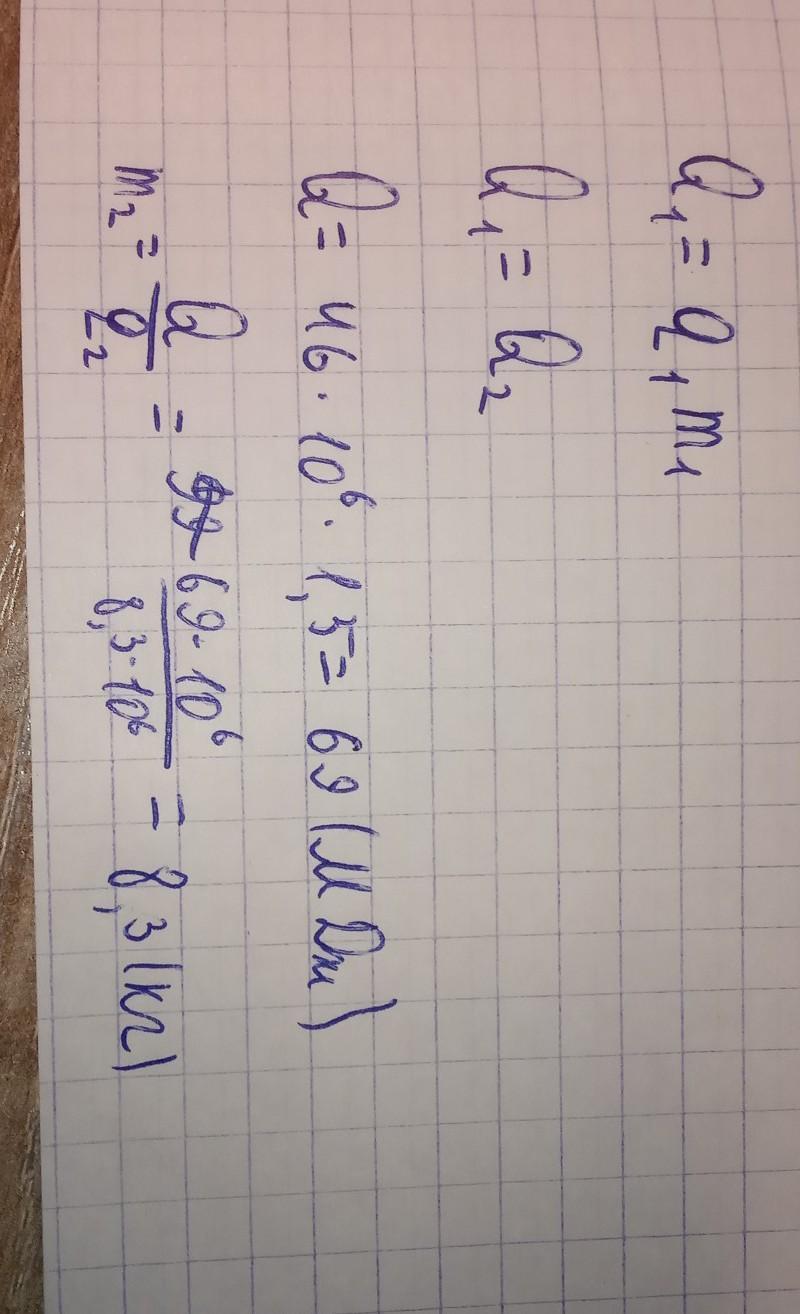 Q₁ = q₁ m₁
Q₁ = Q₂
Q = 46 · 10⁶ · 1,5 = 69 (МДж)
m₂ = Q / q₂ = 69 · 10⁶ / 8,3 · 10⁶ = 8,3 (кг)